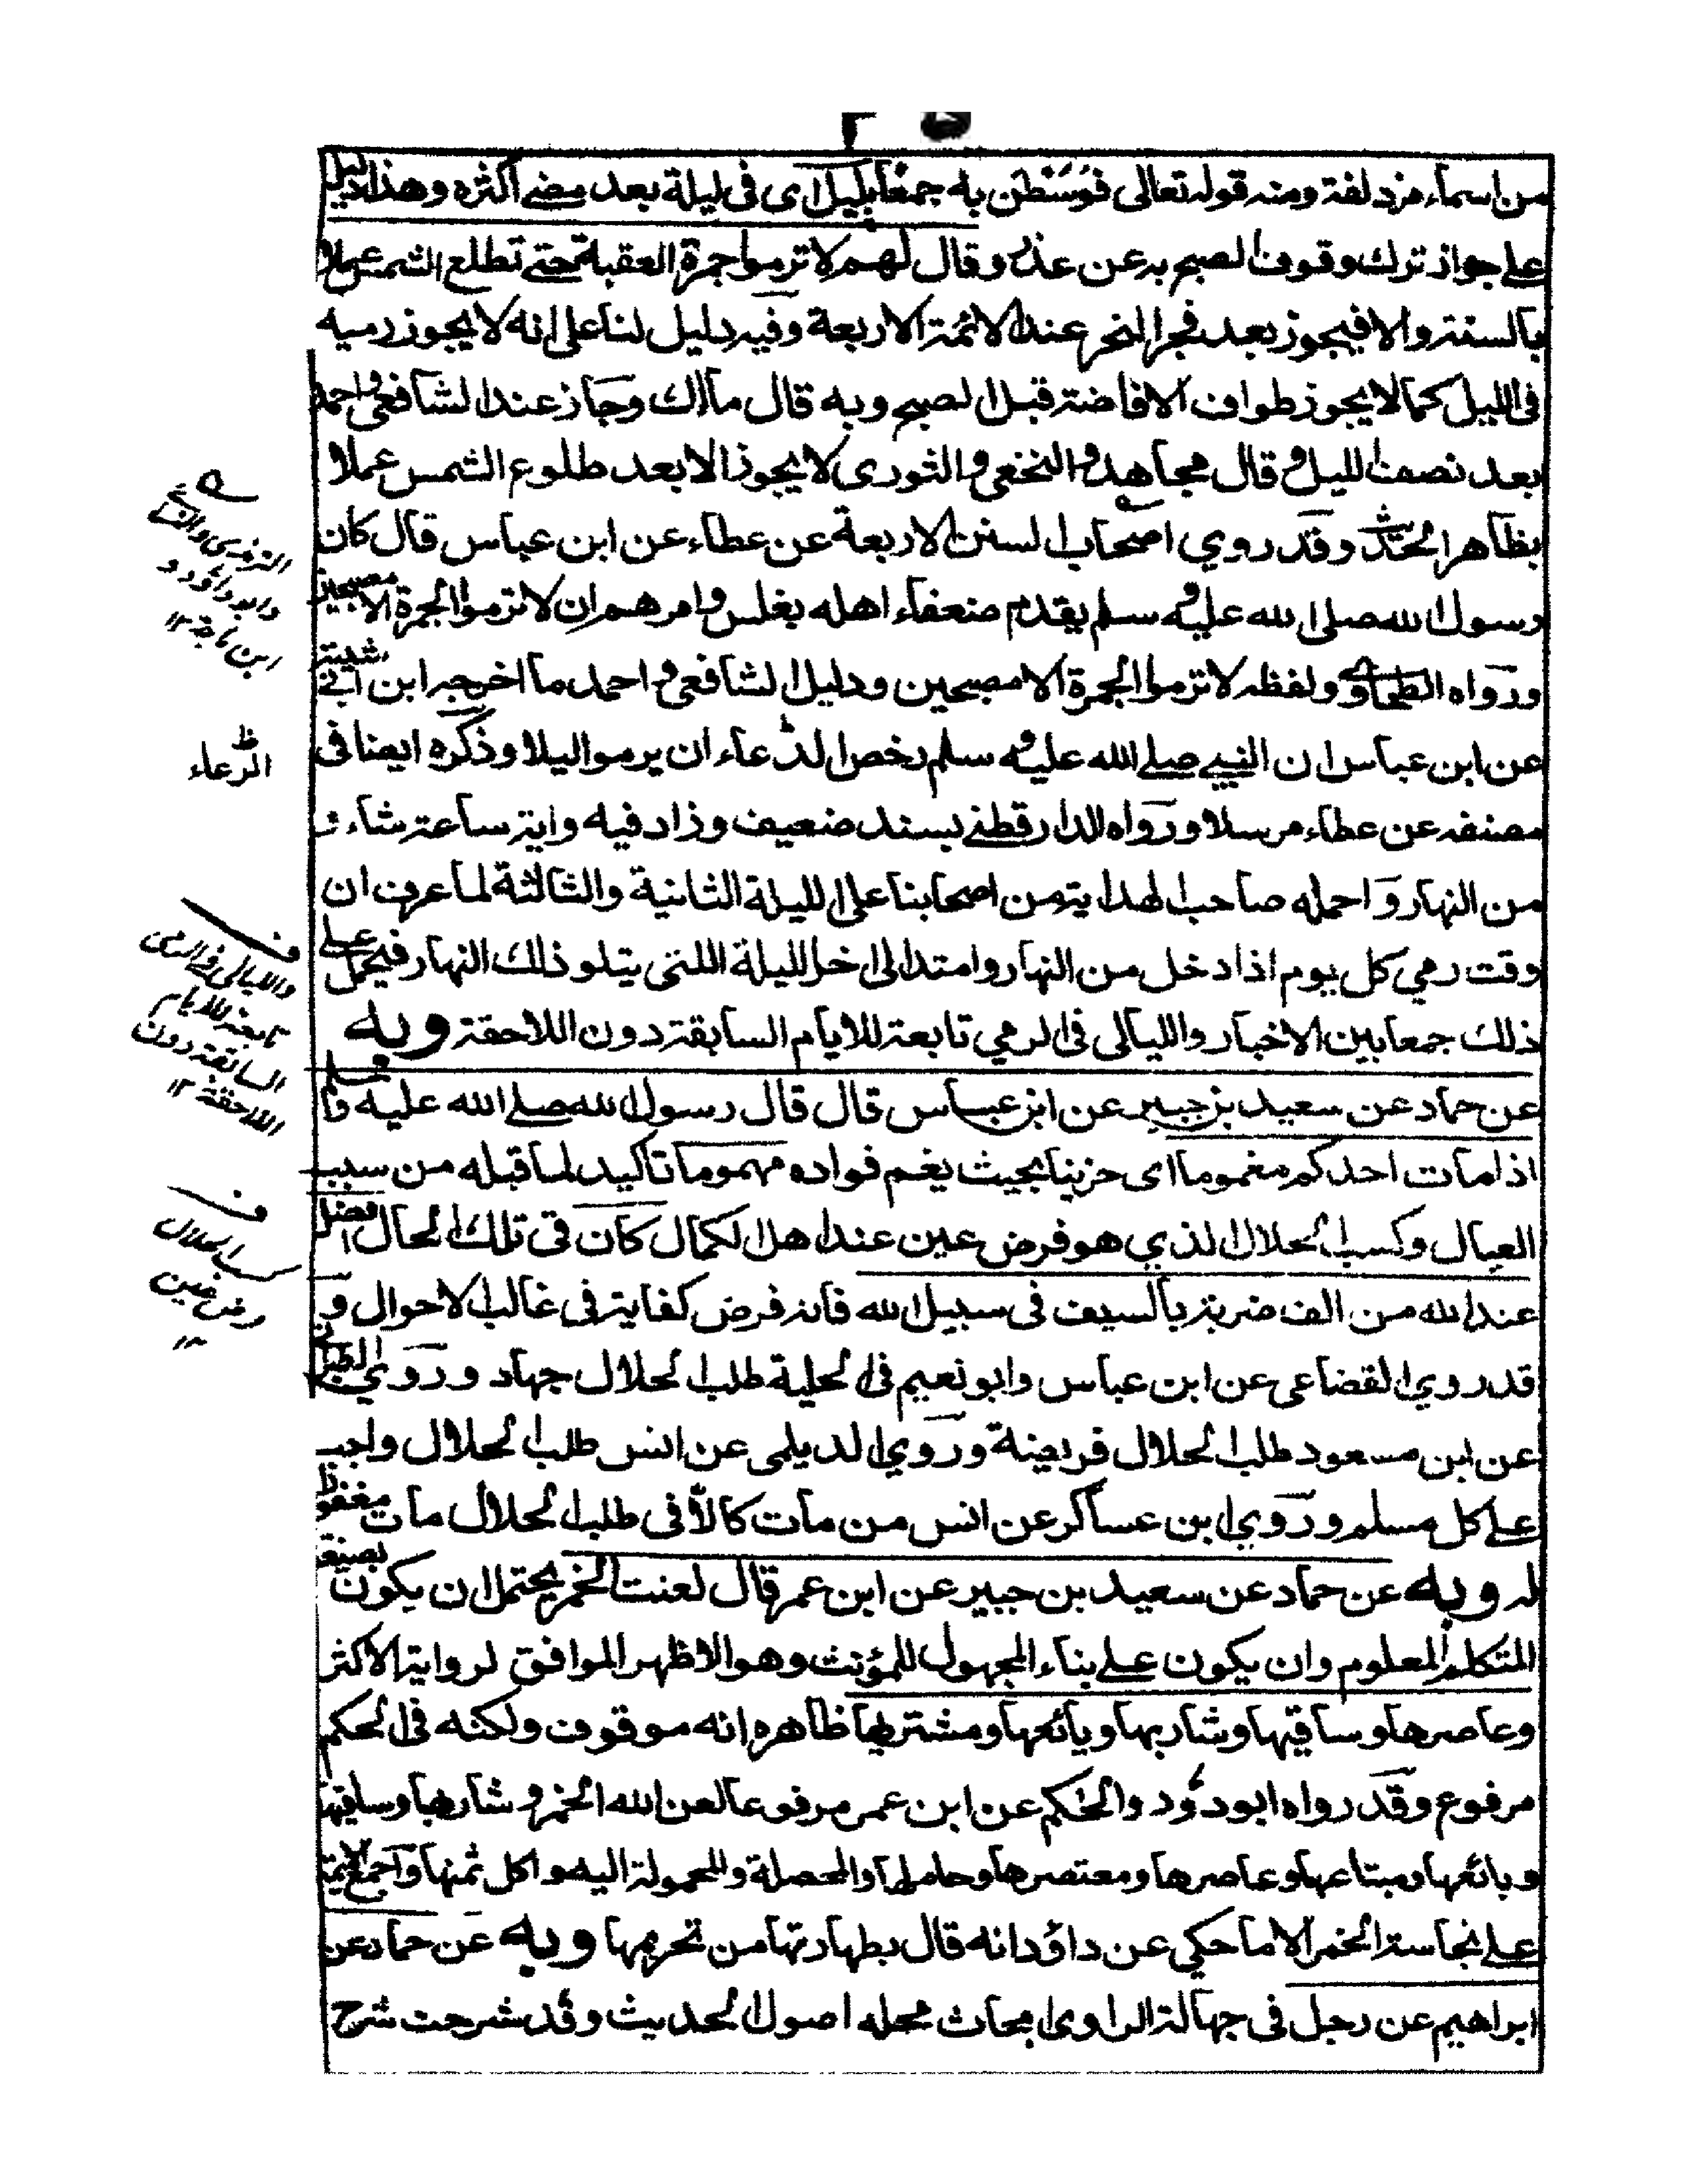 من اسماء مزدلفة ومنه قوله تعالى فوسطن به جمعا بليل اى فى ليلة بعد مضے اكثره وهذا دليل
علے جواز ترك وقوف الصبح به عن عذر وقال لهم لا ترموا جمرة العقبة حتے تطلع الشمس عملا
بالسنة والا فيجوز بعد فجر النحر عند الائمة الاربعة وفيه دليل لنا على انه لا يجوز رميه
فى الليل كما لا يجوز طواف الافاضة قبل الصبح وبه قال مالك وجاز عند الشافعى واحمد
بعد نصف الليل وقال مجاهد والنخعى والثورى لا يجوز الا بعد طلوع الشمس عملا
بظاهر الحديث وقد روي اصحاب السنن الاربعة عن عطاء عن ابن عباس قال كان
رسول الله صلى الله عليه وسلم يقدم ضعفاء اهله بغلس وامرهم ان لا ترموا الجمرة الا مصبحين
ورواه الطحاوے ولفظه لا ترموا الجمرة الا مصبحين ودليل الشافعى واحمد ما اخرجه ابن ابى شيبة
عن ابن عباس ان النبے صلے الله عليه وسلم رخص للرعاء ان يرموا ليلا وذكره ايضا فى
مصنفه عن عطاء مرسلا ورواه الدارقطنے بسند ضعيف وزاد فيه واية ساعة شاء
من النهار واحمله صاحب الهداية من اصحابنا على الليلة الثانية والثالثة لما عرف ان
وقت رمي كل يوم اذا دخل من النهار وامتد الى اخر الليلة اللتى يتلو ذلك النهار فيحمل علے
ذلك جمعا بين الاخبار والليالى فى الرمي تابعة للايام السابقة دون اللاحقة وبه
عن حماد عن سعيد بن جبير عن ابن عباس قال قال رسول الله صلے الله عليه وسلم
اذا مات احدكم مغموما اى حزينا بحيث يغم فواده مهموما تاكيد لما قبله من سبب
العيال وكسب الحلال الذي هو فرض عين عند اهل الكمال كان فى تلك الحال افضل
عند الله من الف ضربة بالسيف فى سبيل الله فانه فرض كفاية فى غالب الاحوال و
قد روي القضاعى عن ابن عباس وابو نعيم فى الحلية طلب الحلال جهاد وروي الطبرانى
عن ابن مسعود طلب الحلال فريضة وروي الديلمى عن انس طلب الحلال واجب
علے كل مسلم وروي ابن عساكر عن انس من مات كالا فى طلب الحلال مات مغفورا
له وبه عن حماد عن سعيد بن جبير عن ابن عمر قال لعنت الخمر يحتمل ان يكون بصيغة
المتكلم المعلوم وان يكون علے بناء المجهول للمؤنث وهو الاظهر الموافق لرواية الاكثر
وعاصرها وساقيها وشاربها وبائعها ومشتريها ظاهره انه موقوف ولكنه فى الحكم
مرفوع وقد رواه ابو دؤد والحاكم عن ابن عمر مرفوعا لعن الله الخمر وشاربها وساقيها
وبائعها ومبتاعها وعاصرها ومعتصرها وحاملها والمحمولة اليه واكل ثمنها واجمع الائمة
علے نجاسة الخمر الا ما حكي عن داؤد انه قال بطهارتها من تحريمها وبه عن حماد عن
ابراهيم عن رجل فى جهالة الراوى ابحاث محله اصول الحديث وقد شرحت شرح
الترمذى والنسائے
وابو داؤد و
ابن ماجة ١٢
الرعاء
ف
والليالى فے الرمى
تابعة للايام
السابقة دون
اللاحقة ١٢
ف
كسب الحلال
فرض عين
١٢